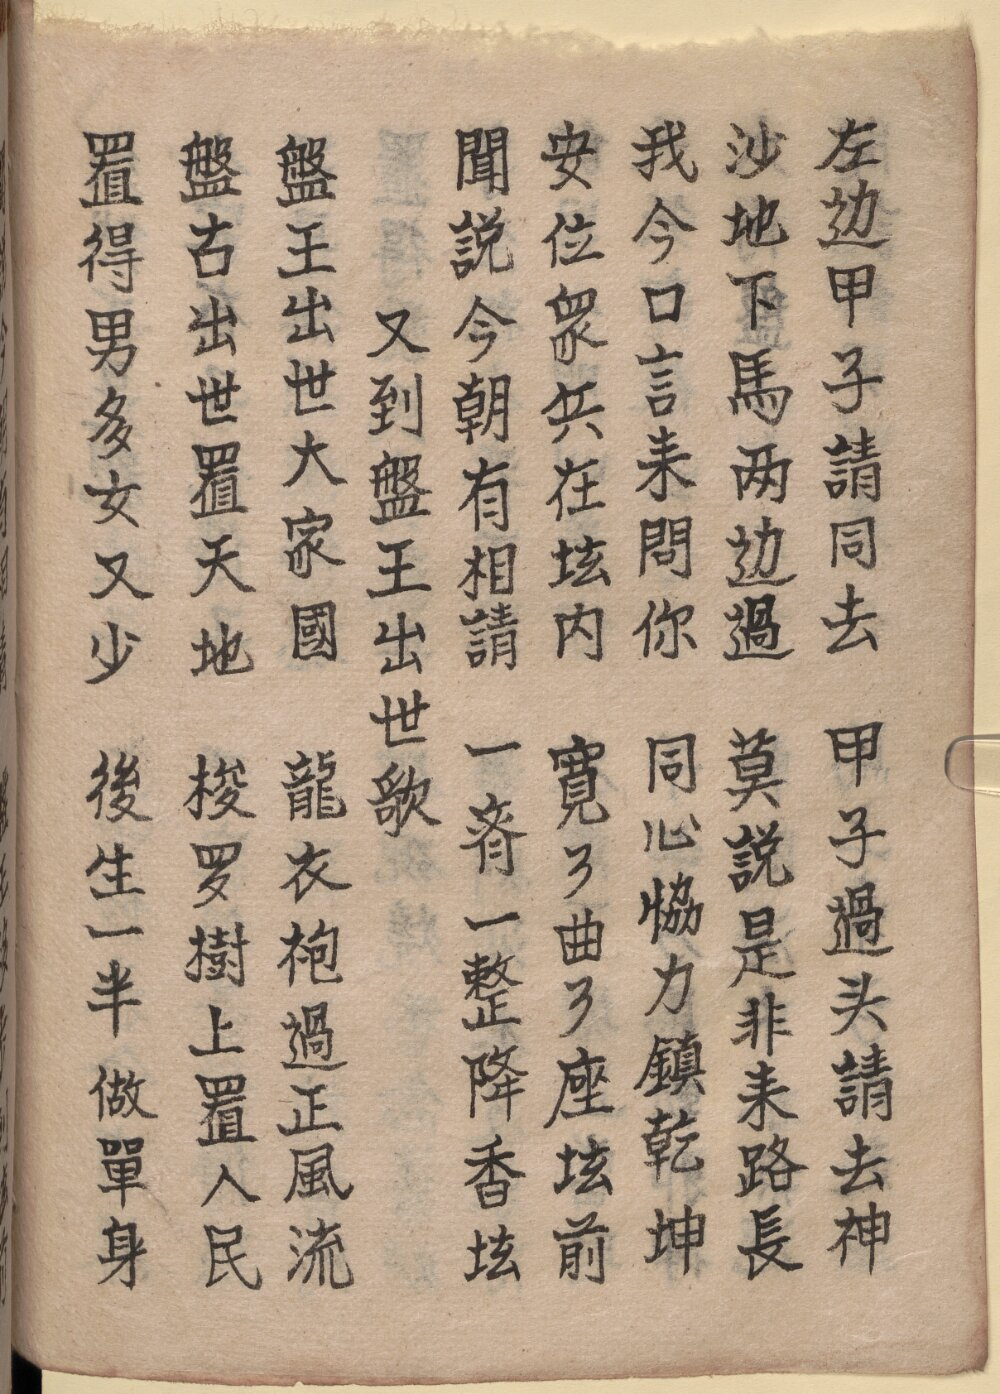 左边甲子請同去 甲子過头請去神
沙地下馬两边過 莫説是非耒路長
我今口言耒問你 同心恊力鎮乾坤
安位衆兵在坛内 寛了曲了座坛前
聞説今朝有相請 一齊一整降香坛
又到盤王出世歌
盤王出世大家國 龍衣袍過正風流
盤古出世置天地 梭罗樹上置人民
置得男多女又少 後生一半做單身